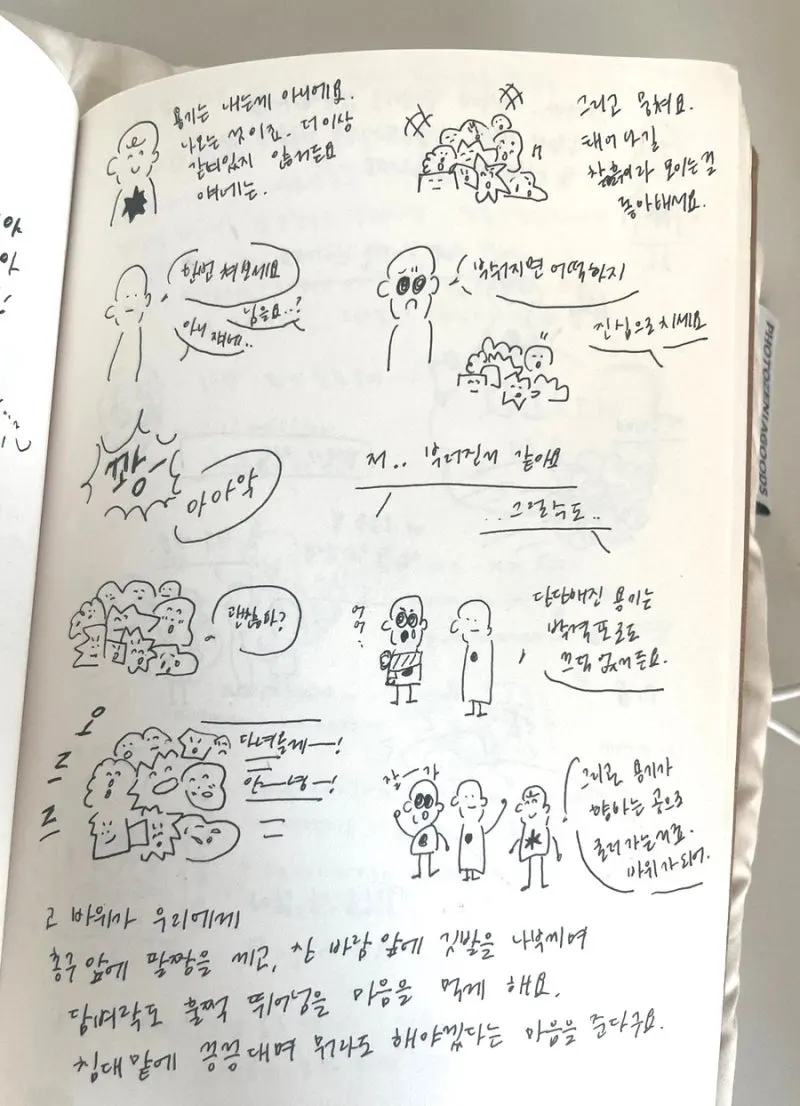 용기는 내는게 아니에요.
나오는 것이죠. 더 이상
갇혀있지 않거든요
얘네는.
그리고 뭉쳐요.
태어나길
찰흙이라 모이는걸
좋아해서요.
한번 쳐보세요
님을요..?
아니 쟤네..
부숴지면 어떡하지
진심으로 치세요
쾅-
아아악
저.. 부러진거 같아요
..그럴수도..
괜찮아?
단단해진 용기는
박격포로도
끄덕 없거든요.
오
르
르
다녀올게—!
안—녕—!
잘—가
그리곤 용기가
향하는 곳으로
굴러가는거죠.
바위가 되어.
고 바위가 우리에게
총구 앞에 팔짱을 끼고, 찬 바람 앞에 깃발을 나부끼며
담벼락도 훌쩍 뛰어넘을 마음을 먹게 해요.
침대 맡에 끙끙대며 뭐라도 해야겠다는 마음을 준다구요.
PHOTOGENIAGOODS